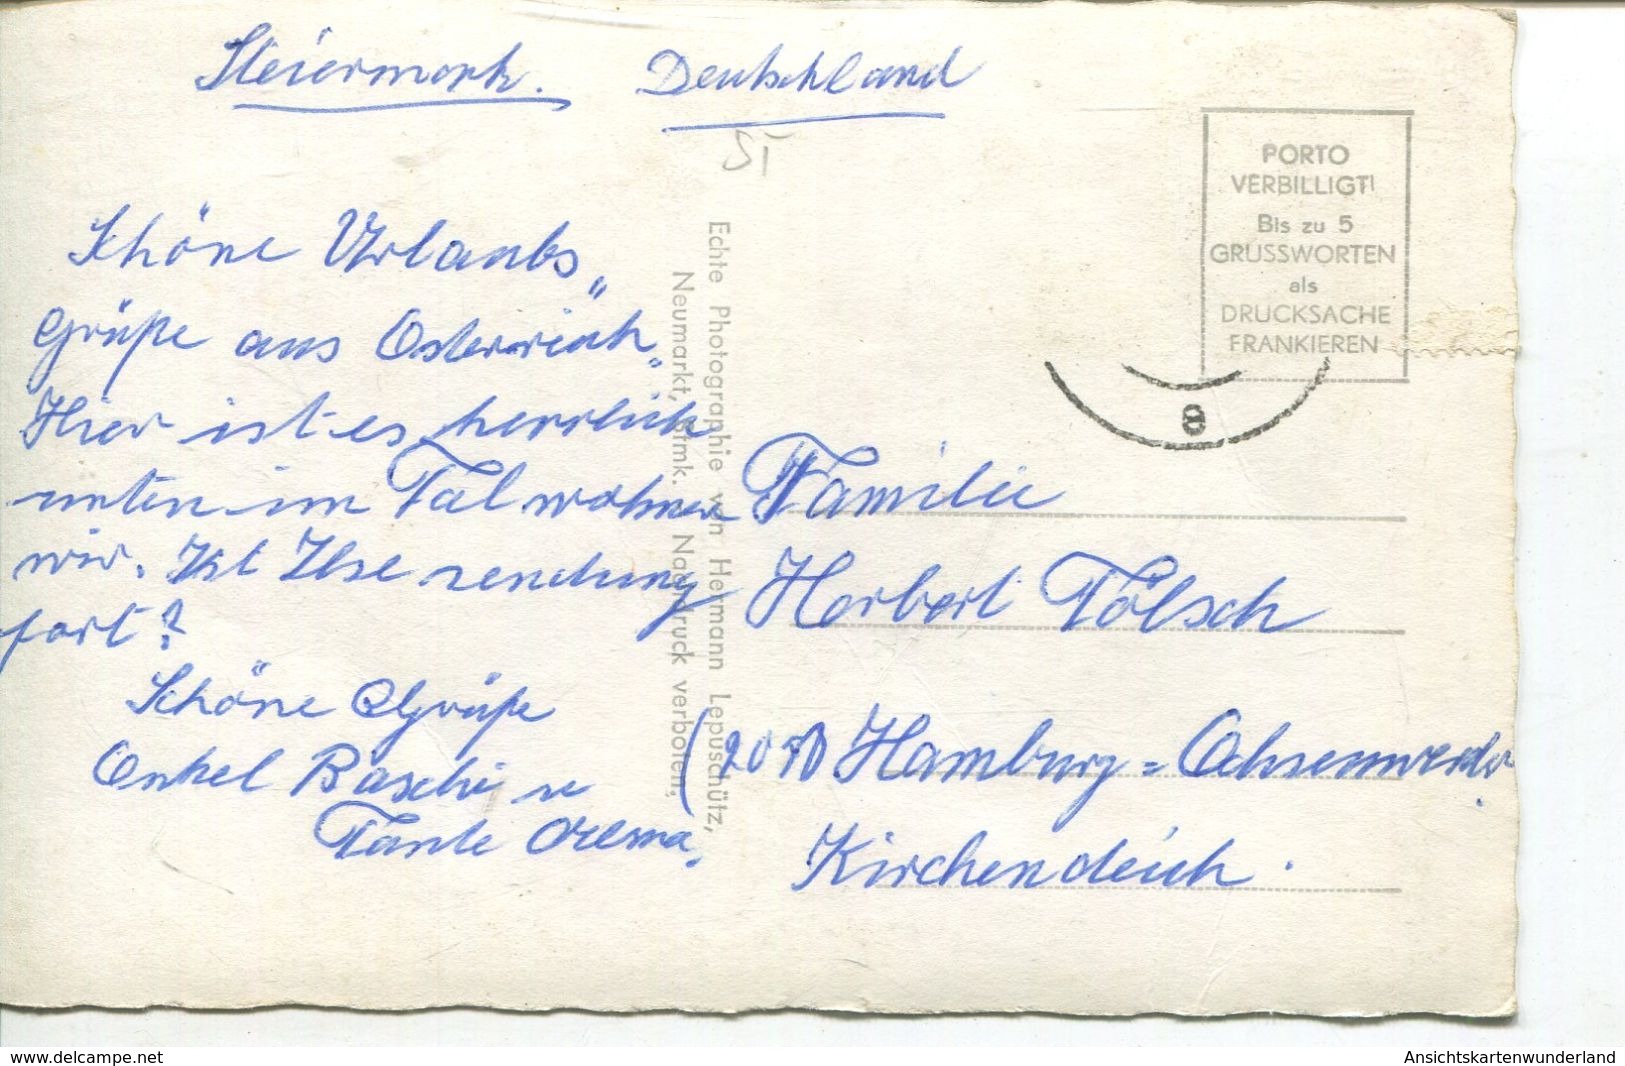 Steiermark.
Deutschland
ST
PORTO
VERBILLIGT!
Bis zu 5
GRUSSWORTEN
als
DRUCKSACHE
FRANKIEREN
8
Schöne Urlaubs„
Grüße aus Österreich.
Hier ist es herrlich
unten im Tal wohnen
wir. Ist Ilse
fort?
Schöne Grüße
Onkel u
Tante
Echte Photographie von Hermann Lepuschütz,
Neumarkt, Stmk. Nachdruck verboten.
Familie
Herbert Tölsch
Hamburg-Ochsenwerder
Kirchendeich.
www.delcampe.net
Ansichtskartenwunderland